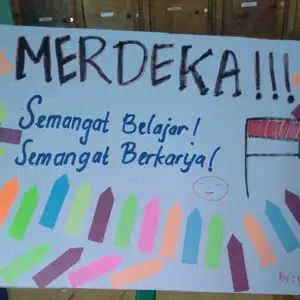 MERDEKA!!!
Semangat Belajar!
Semangat Berkarya!
By: